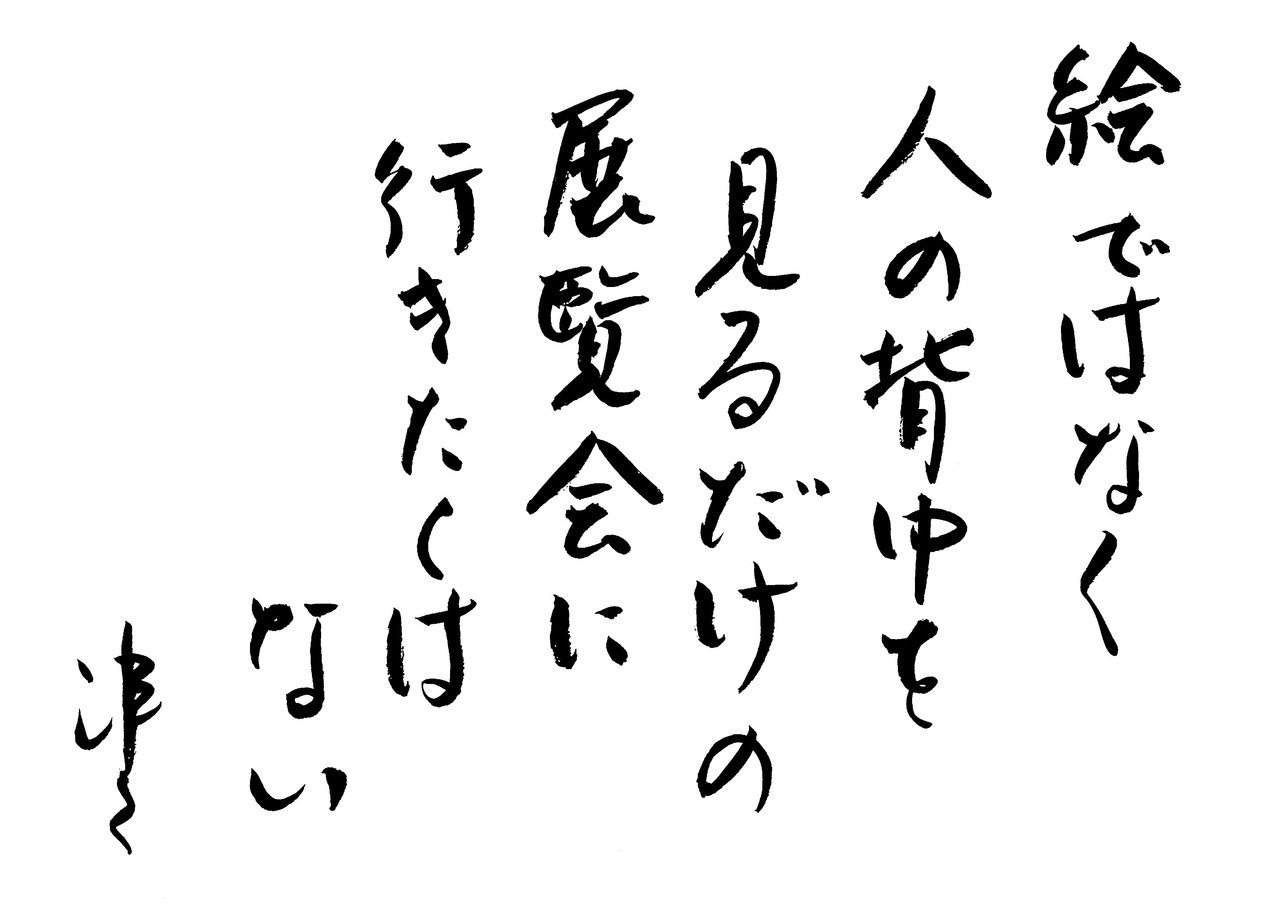 絵ではなく
人の背中を
見るだけの
展覧会に
行きたくは
ない